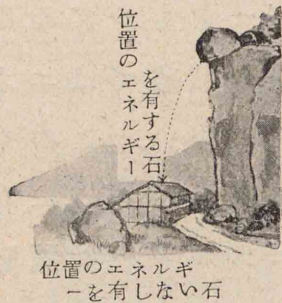 位置のエネルギー
を有する石
位置のエネルギ
ーを有しない石